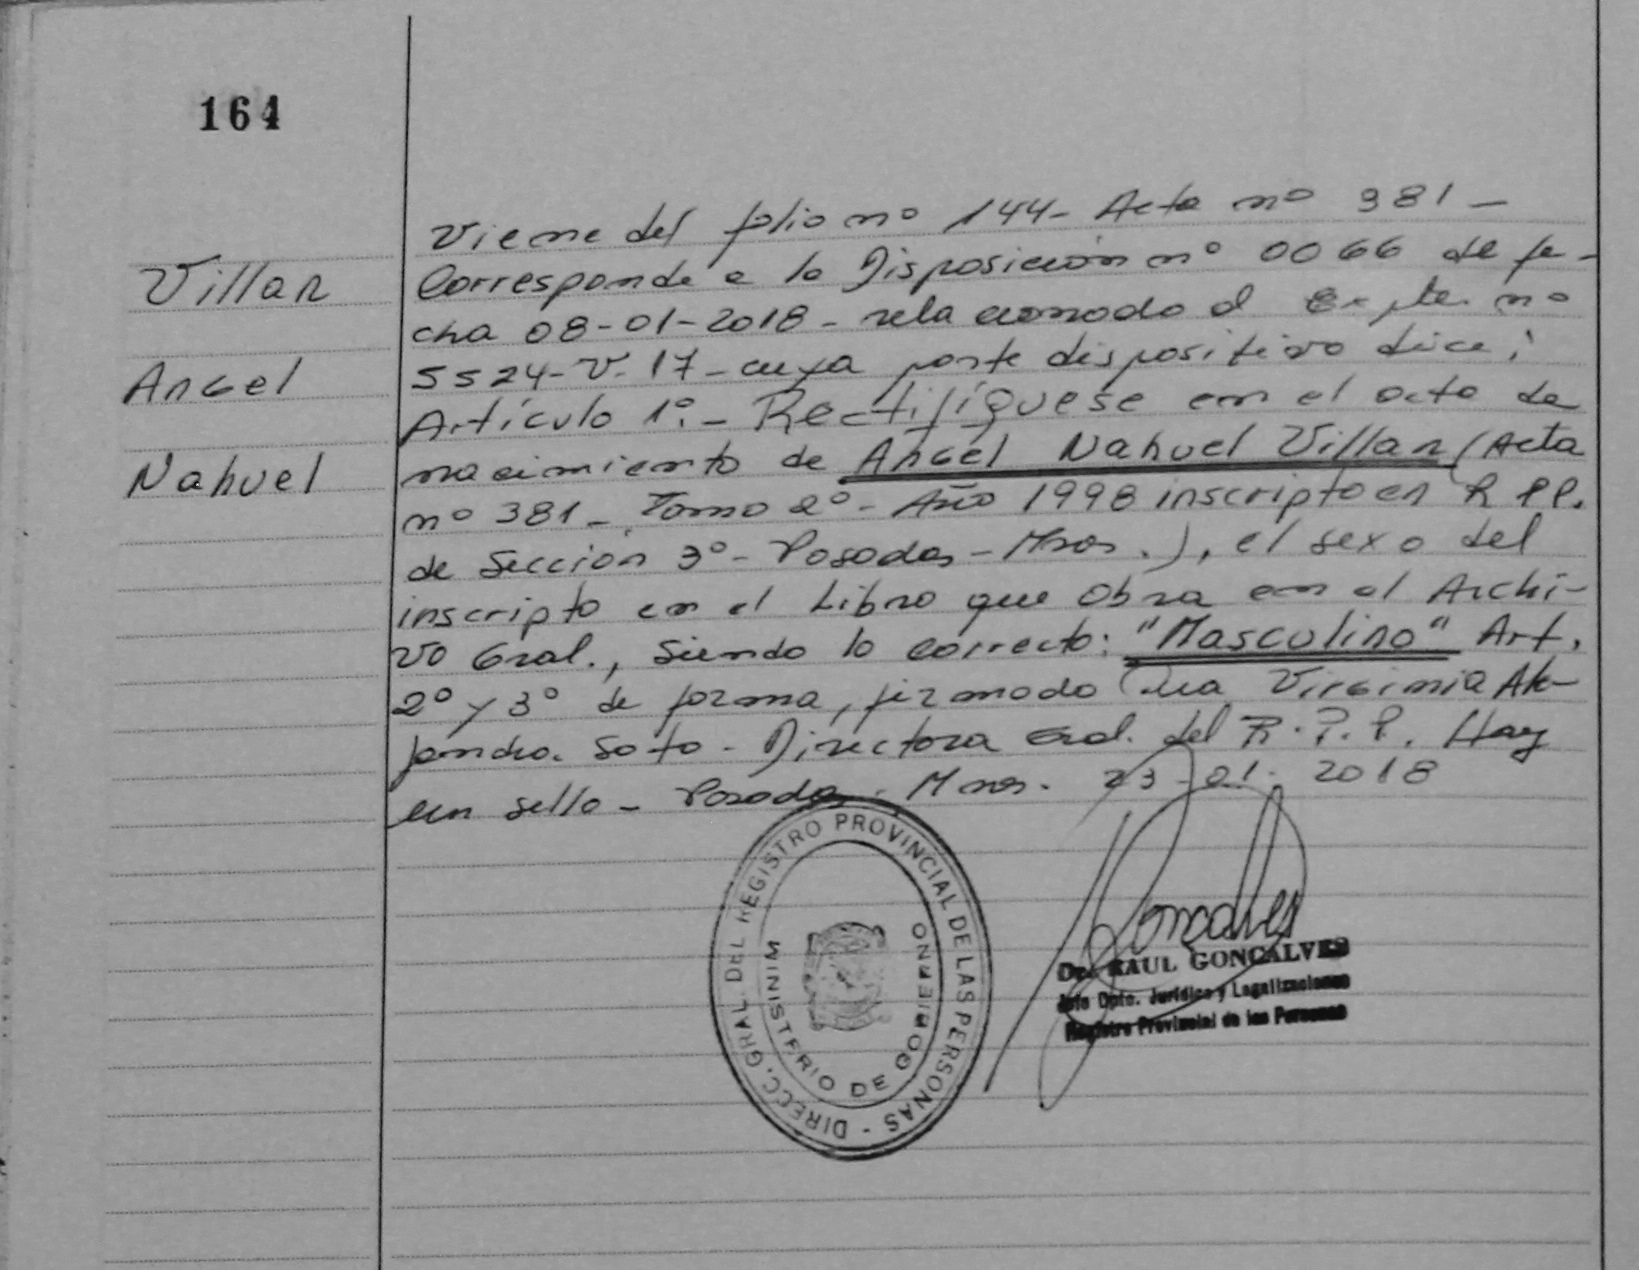 164
Villar
Angel
Nahuel
Viene del folio nº 144- Acta nº 381-
Corresponde a la Disposición nº 0066 de fe-
cha 08-01-2018- relacionado al Expte. nº
5524-V-17- cuya parte dispositiva dice:
Artículo 1º.- Rectifíquese en el acta de
nacimiento de Angel Nahuel Villar (Acta
nº 381- Tomo 2º- Año 1998 inscripto en R.P.P.
de Sección 3º- Posadas- Mnes.), el sexo del
inscripto en el Libro que obra en el Archi-
vo Gral., siendo lo correcto: "Masculino" Art.
2º y 3º de forma, firmado Virginia Ale-
jandra Soto- Directora Gral. del R.P.P. Hay
un sello- Posadas. Mnes. 23-01-2018
DIRECC. GRAL. DEL REGISTRO PROVINCIAL DE LAS PERSONAS -
MINISTERIO DE GOBIERNO
Dr. RAUL GONCALVES
Jefe Dpto. Jurídico y Legalizaciones
Registro Provincial de las Personas